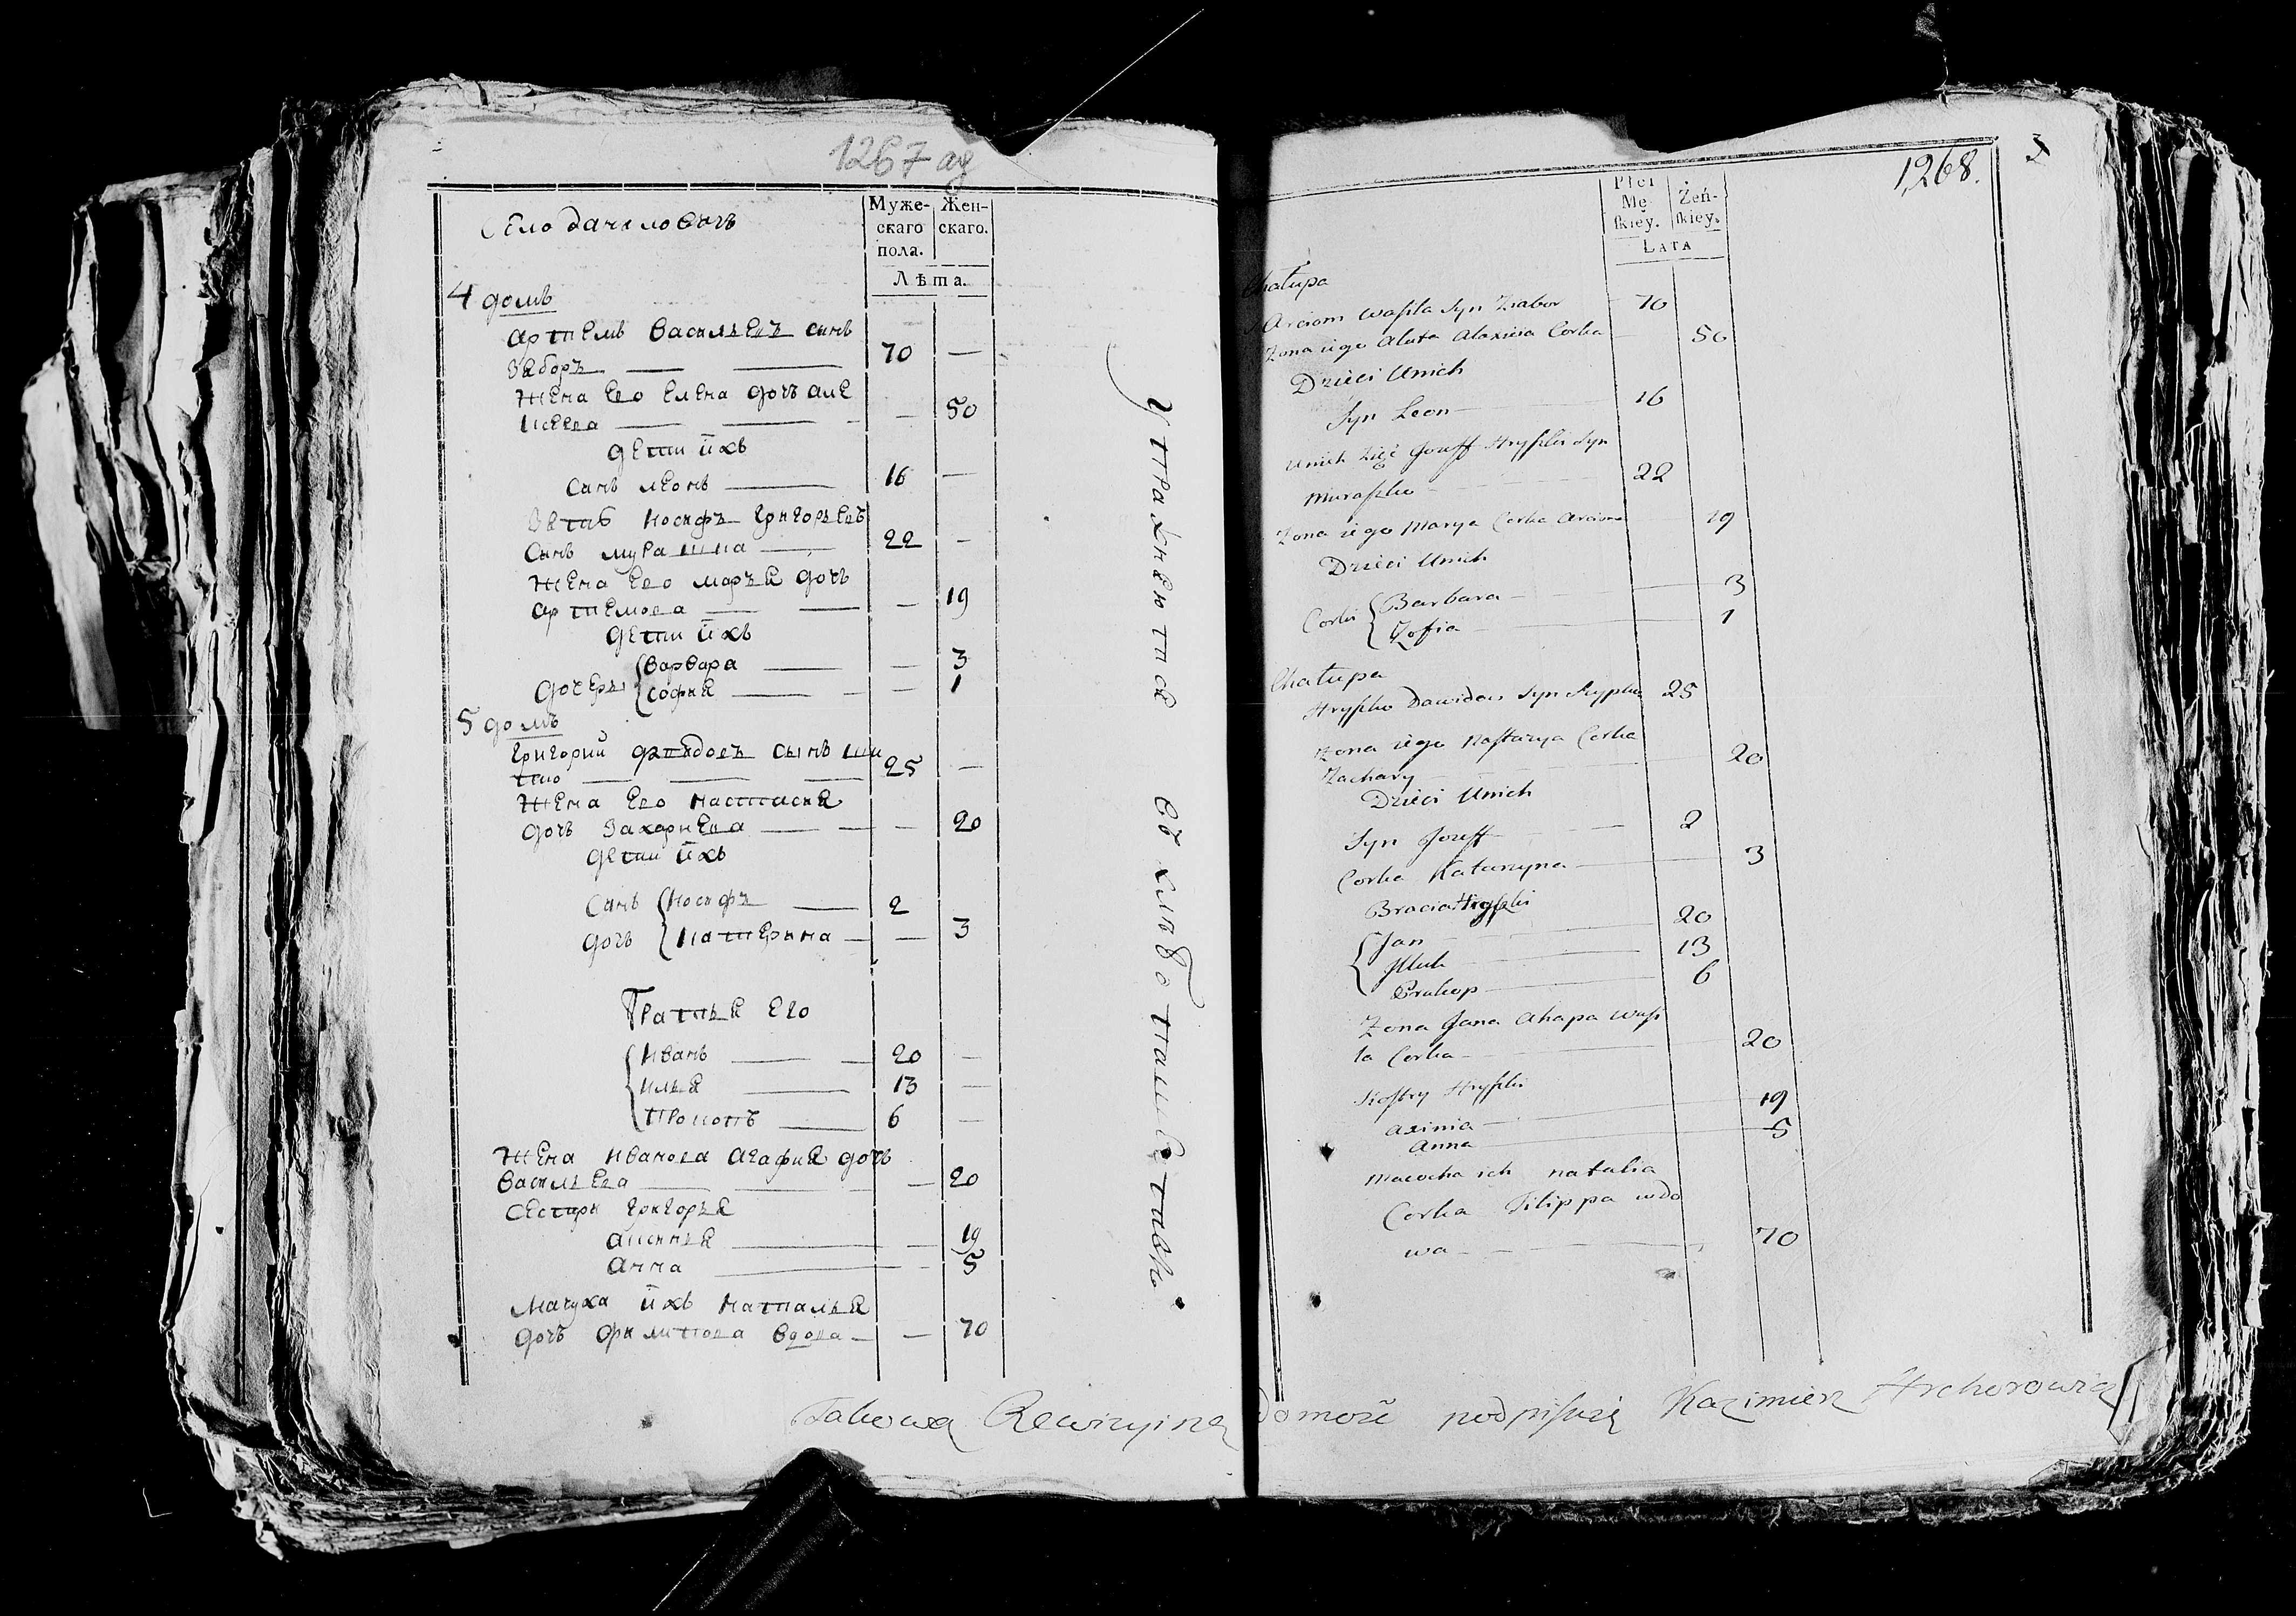 1267 ад
Село даниловичъ
Муже-
скаго
пола.
Жен-
скаго.
Лѣта.
4 домъ
артемъ васильевъ синъ
Заборъ — — 70 —
жена Ево Елена дочъ але
ксеева — — — — 50
дети ихъ
синъ леонъ — 16 —
Зять иосифъ григорьевъ
синъ мурашка — 22 —
жена Ево маръя дочъ
артемова — — — 19
дети ихъ
дочеры варвара — — 3
софия — — 1
5 домъ
григорий сынъ
— — — 25 —
жена Ево настасия
дочъ захариева — — — 20
дети ихъ
синъ иосифъ — 2
дочъ катерина — — 3
братья Его
иванъ — — 20 —
илья — 13 —
прокопъ — 6 —
жена иванова агафия дочъ
васильева — — — 20
сестри григорья
аксинья — — 19
анна — — 5
мачуха ихъ наталья
дочъ филипова вдова — — 70
1268.
Płci
Mę
skiey.
Żeń-
skiey.
LATA
Chałupa
Arciom Wasila Syn Zabor 70
Zona iego Aluta Alaxieia Corka 50
Dzieci Unich
Syn Leon — 16
Unich Zięć Jozeff Hryszki Syn
Muraszko — 22
Zona iego Marya Corka Arcioma 19
Dzieci Unich
Corki Barbara — 3
Zofia — 1
Chałupa
Hryszko Dawidow Syn 25
Zona iego Nastazya Corka
Zachary — 20
Dzieci Unich
Syn Jozeff — 2
Corka Katarzyna — 3
Bracia Hryszki
Jan — 20
13
Prakop — 6
Zona Jana Ahapa Wasi
la Corka — 20
Siostry Hryszki
Axinia — 19
Anna — 5
Macocha ich Natalia
Corka Filippa wdo
wa — 70
Takową Rewizyiną podpisuię Kazimierz